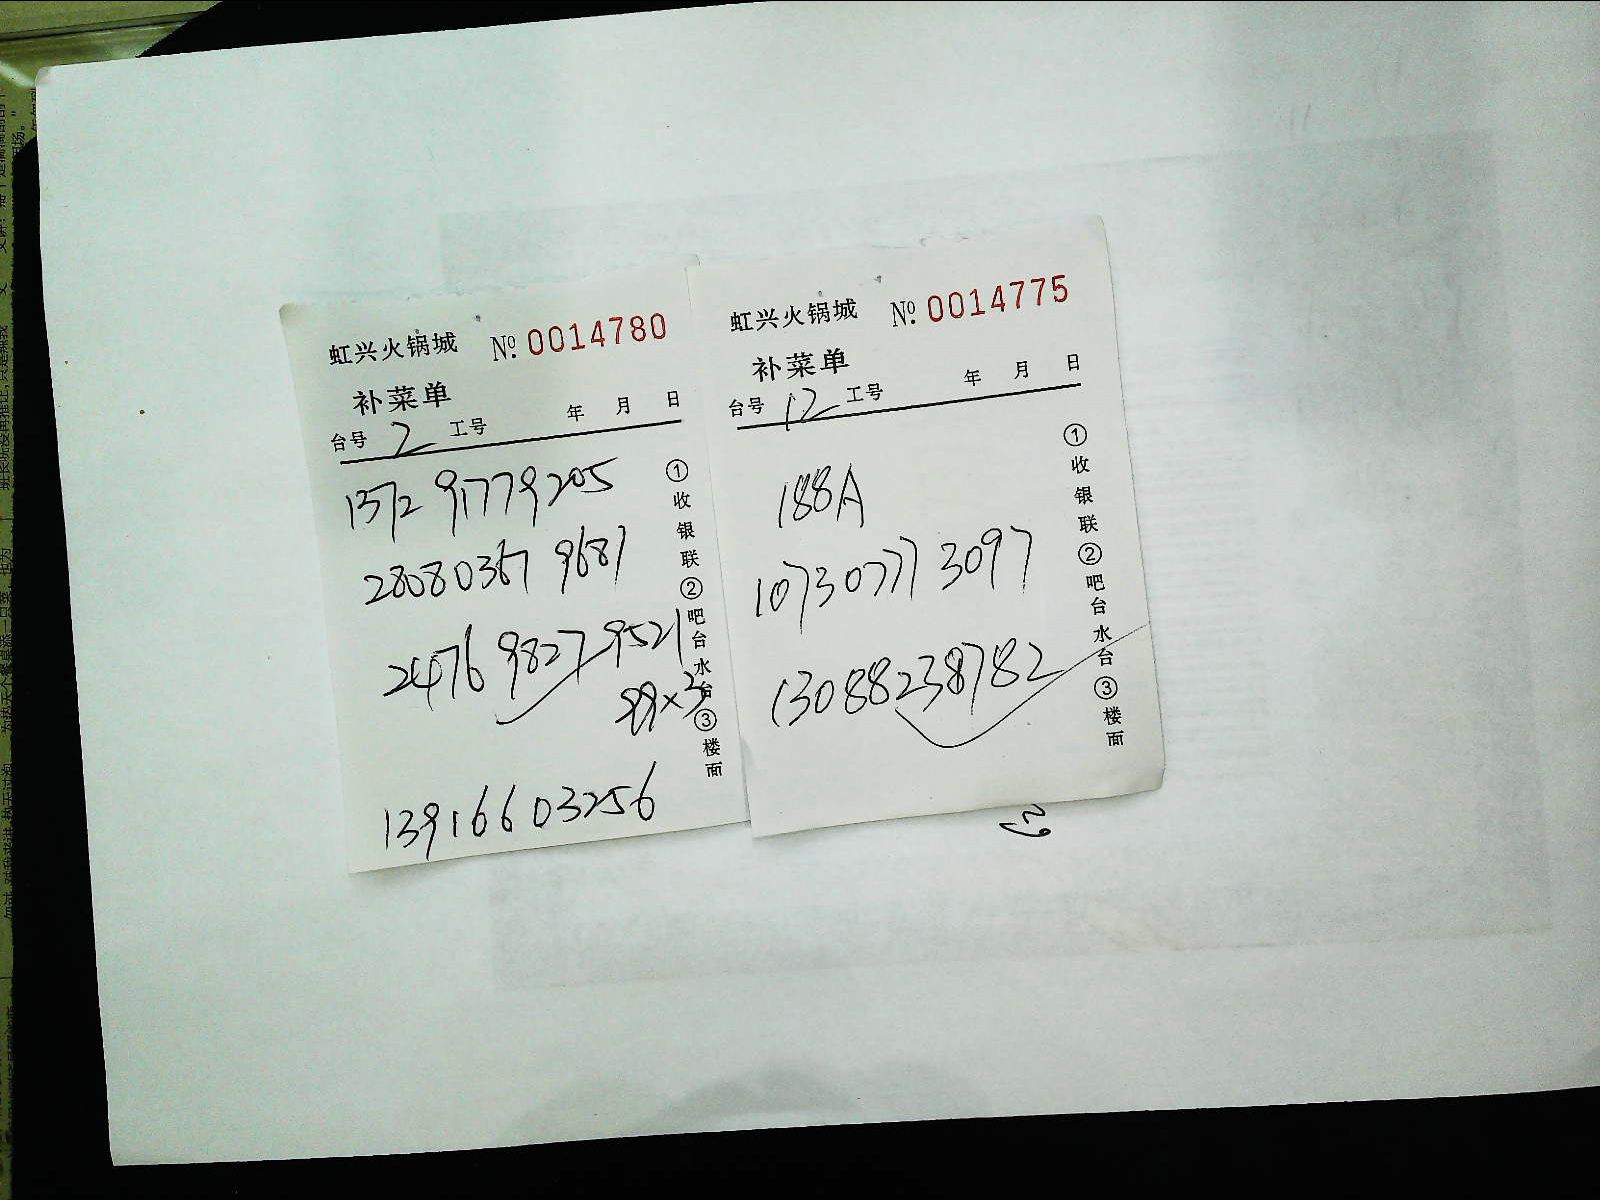 虹兴火锅城 № 0014780
补菜单
台号 2 工号 年 月 日
1372 91779205
28080367 9681
2476 9827 9521
99×3
13916603256
①收银联②吧台水台③楼面
虹兴火锅城 № 0014775
补菜单
台号 12 工号 年 月 日
188A
10730777 3097
13088238782
①收银联②吧台水台③楼面